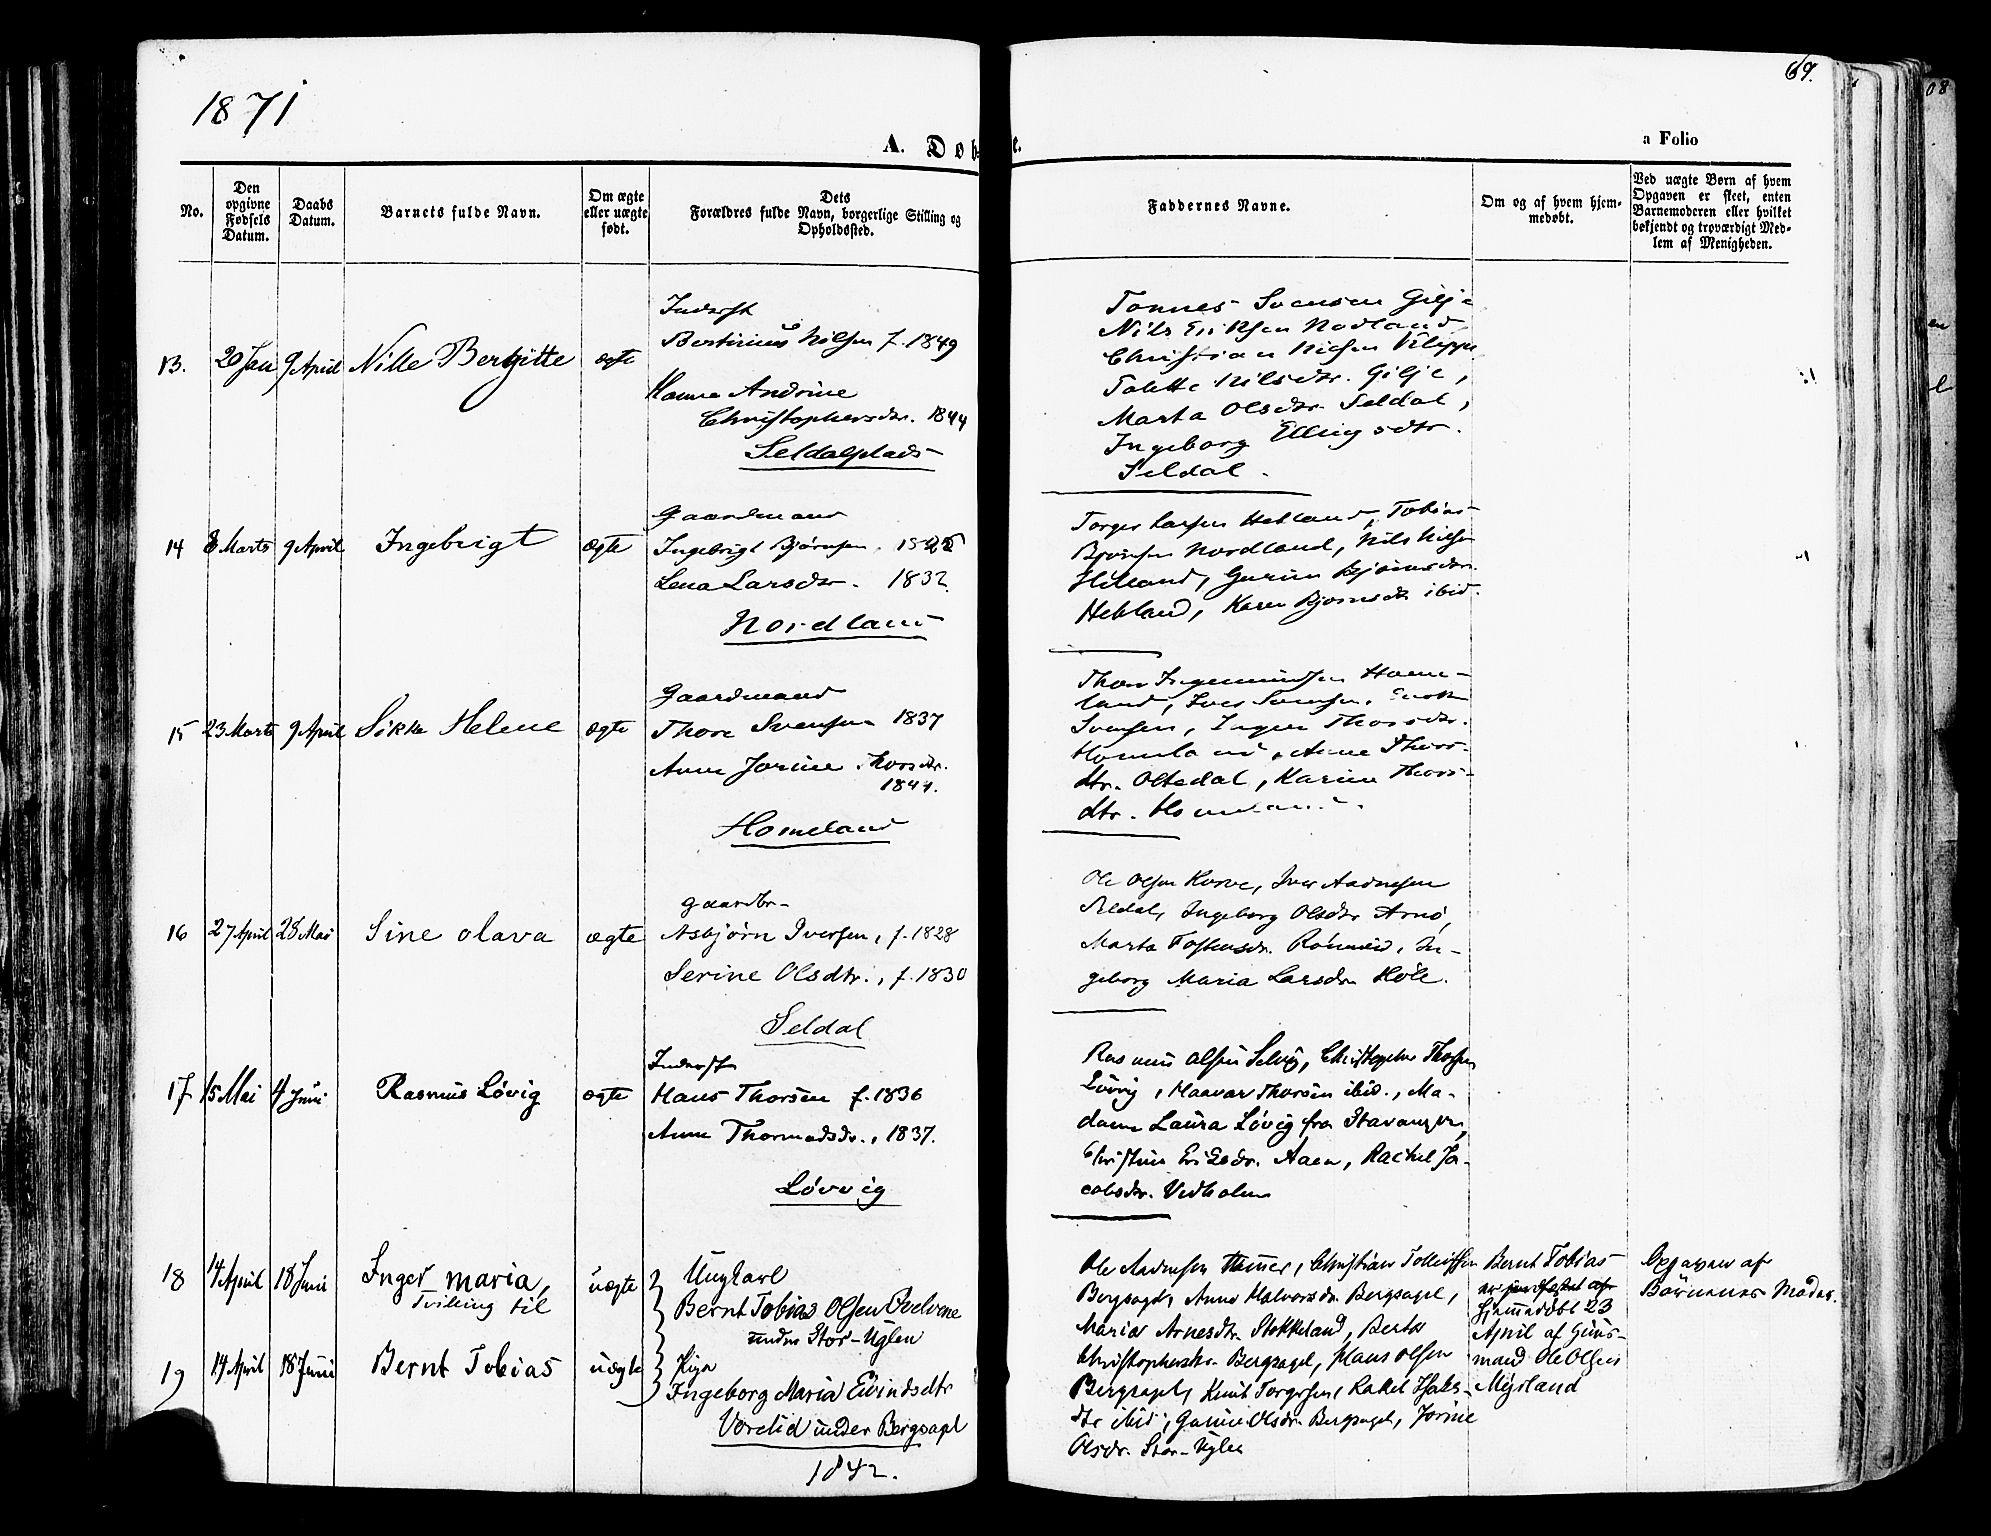 1871
69.
A. Døb
e.
a Folio
No.
Den opgivne Fødsels Datum.
Daabs Datum.
Barnets fulde Navn.
Om ægte eller uægte født.
Dets Forældres fulde Navn, borgerlige Stilling og Opholdssted.
Faddernes Navne.
Om og af hvem hjemmedøbt.
Ved uægte Børn af hvem Opgaven er skeet, enten Barnemoderen eller hvilket bekjendt og troværdigt Medlem af Menigheden.
13. 20 Jan 9 April Nille Bergitte ægte
Inderst
Bertinius Nilsen f. 1849
Hanna Andrine
Christophersdtr. 1844
Seldalplads
Tønnes Svensen Gilje
Nils Eriksen Nodland
Christian Nilsen
Tolette Nilsdtr. Gilje,
Marta Olsdtr. Seldal,
Ingeborg Ellingsdtr.
Seldal.
14 8 Marts 9 April Ingebrigt ægte
Gaardmand
Ingebrigt Bjørnsen. 1825
Lena Larsdtr. 1832
Nordland
Torger Larsen Hetland, Tobias
Bjørnsen Nordland, Nils Nilsen
Hetland, Gurine Bjørnsdtr.
Hetland, Karen Bjørnsdtr ibid.
15 23 Marts 9 April Sikke Helene ægte
Gaardmand
Thore Svensen 1837
Anne Jorine Thorsdtr.
1844.
Homeland
Thore Ingemundsen Home-
land, Ivers Svensen, Enok
Svensen, Inger Thorsdtr.
Homeland, Anne Thors-
dtr. Oltedal, Karine Thors-
dtr. Homeland.
16 27 April 28 Mai Sine Olava ægte
Gaardbr.
Asbjørn Iversen, f. 1828
Serine Olsdtr., f. 1830
Seldal
Ole Olsen, Iver Aadnesen
Seldal, Ingeborg Olsdtr Arnø,
Marta Tostensdr., In-
geborg Maria Larsdtr Høle.
17 15 Mai 4 Juni Rasmus Løvig ægte
Inderst
Hans Thorsen f. 1836
Anne Thormodsdr., 1837.
Løvvig
Rasmus Olsen Selvig, Christopher Thorsen
Løvvig, Haavar Thorsen ibid., Ma-
dame Laura Løvig fra Stavanger,
Christine Eriksdr., Rachel Ja-
cobsdr. Vedholm
18 14 April 18 Juni Inger Maria, uægte
Tvilling til
Ungkarl
Bernt Tobias Olsen
under Stor-Uglen
19 14 April 18 Juni Bernt Tobias uægte
Pige
Ingeborg Maria Eivindsdtr
Vorelid under Bergsagel
1842.
Ole Aadnesen, Christian Tollefsen
Bergsagel, Anne Halvorsdr. Bergsagel,
Maria Arnesdtr. Stokkeland, Berta
Christophersdr. Bergsagel, Hans Olsen
Bergsagel, Knut Torgersen, Rakel Isaks-
dtr ibid, Gurine Olsdr. Bergsagel, Jorine
Olsdr. Stor-Uglen
Bernt Tobias
Hjemmedøbt 23
April af Huus-
mand Ole Olsen
Myrland
Opgaven af
Børnenes Moder.